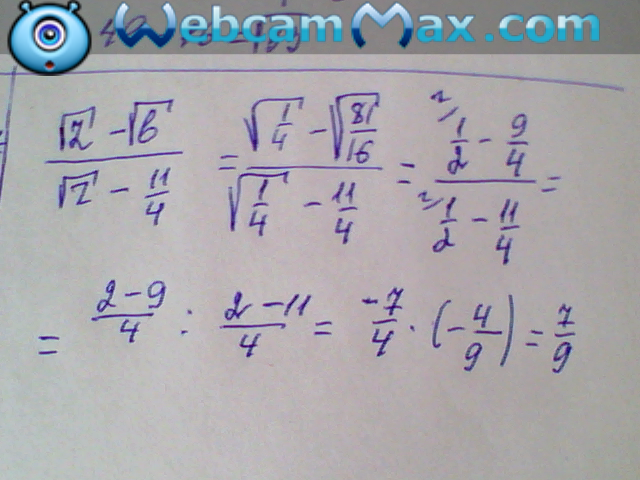 WebcamMax.com
(√2 − √6)/(√2 − 11/4) = (√(1/4) − √(81/16))/(√(1/4) − 11/4) = (²⁄1/2 − 9/4)/(²⁄1/2 − 11/4) =
= (2−9)/4 : (2−11)/4 = −7/4 · (−4/9) = 7/9